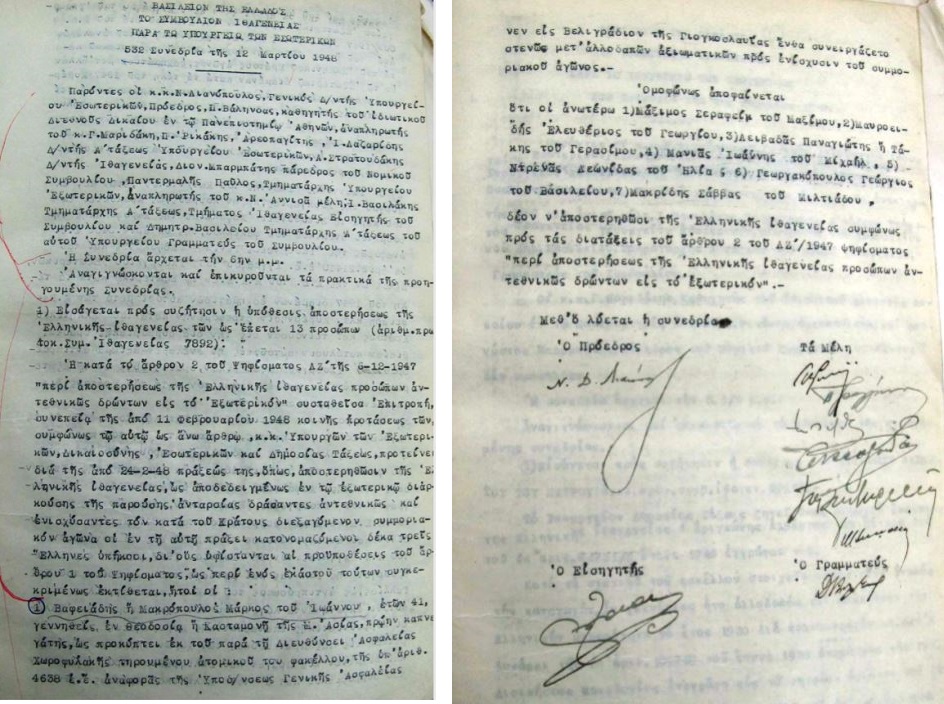 ΒΑΣΙΛΕΙΟΝ ΤΗΣ ΕΛΛΑΔΟΣ
ΤΟ ΣΥΜΒΟΥΛΙΟΝ ΙΘΑΓΕΝΕΙΑΣ
ΠΑΡΑ ΤΩ ΥΠΟΥΡΓΕΙΩ ΤΩΝ ΕΣΩΤΕΡΙΚΩΝ
532 Συνεδρία τῆς 12 Μαρτίου 1948
Παρόντες οἱ κ.κ.Ν.Διανόπουλος, Γενικός Δ/ντής Ὑπουργεί-
ου Ἐσωτερικῶν, Πρόεδρος, Π.Βάληνδας, καθηγητής τοῦ ἰδιωτικοῦ
Διεθνοῦς Δικαίου ἐν τῷ Πανεπιστημίῳ Ἀθηνῶν, ἀναπληρωτής
τοῦ κ.Γ.Μαριδάκη, Π. Ρικάκης, Ἀρεοπαγίτης, Ἰ.Λαζαρίδης
Δ/ντής Α'τάξεως Ὑπουργείου Ἐσωτερικῶν, Α.Στρατουδάκης
Δ/ντής Ἰθαγενείας, Διον.Μπαρμπάτης πάρεδρος τοῦ Νομικοῦ
Συμβουλίου, Παντερμαλῆς Παῦλος, Τμηματάρχης Ὑπουργείου
Ἐξωτερικῶν, ἀναπληρωτής τοῦ κ.Ν.Ἀννίσου μέλη, Ι.Βασιλάκης
Τμηματάρχης Α'τάξεως, Τμήματος Ἰθαγενείας Εἰσηγητής τοῦ
Συμβουλίου καί Δημητρ.Βασιλείου Τμηματάρχης Α'τάξεως τοῦ
αὐτοῦ Ὑπουργείου Γραμματεύς τοῦ Συμβουλίου.
Ἡ Συνεδρία ἄρχεται τήν 6ην μ.μ.
Ἀναγιγνώσκονται καί ἐπικυροῦνται τά πρακτικά τῆς προη-
γουμένης Συνεδρίας.
1) Εἰσάγεται πρός συζήτησιν ἡ ὑπόθεσις ἀποστερήσεως τῆς
Ἑλληνικῆς ἰθαγενείας τῶν ὡς ἕπεται 13 προσώπων (ἀριθμ.πρω
τοκ.Συμ.Ἰθαγενείας 7892):
Ἡ κατά τό ἄρθρον 2 τοῦ Ψηφίσματος ΛΖ' τῆς 6-12-1947
"περί ἀποστερήσεως τῆς Ἑλληνικῆς ἰθαγενείας προσώπων ἀν-
τεθνικῶς δρώντων εἰς τό Ἐξωτερικόν" συσταθεῖσα Ἐπιτροπή,
συνεπείᾳ τῆς ἀπό 11 Φεβρουαρίου 1948 κοινῆς προτάσεως τῶν,
συμφώνως τῷ αὐτῷ ὡς ἄνω ἄρθρῳ, κ.κ.Ὑπουργῶν τῶν Ἐξωτερι-
κῶν, Δικαιοσύνης, Ἐσωτερικῶν καί Δημοσίας Τάξεως, προτείνει
διά τῆς ἀπό 24-2-48 πράξεώς της, ὅπως, ἀποστερηθῶσι τῆς Ἑλ
ληνικῆς ἰθαγενείας, ὡς ἀποδεδειγμένως ἐν τῷ ἐξωτερικῷ διάρ-
κούσης τῆς παρούσης ἀνταρσίας δράσαντες ἀντεθνικῶς καί
ἐνισχύσαντες τόν κατά τοῦ Κράτους διεξαγόμενον συμμορια-
κόν ἀγῶνα οἱ ἐν τῇ αὐτῇ πράξει κατονομαζόμενοι δέκα τρεῖς
Ἕλληνες ὑπήκοοι, δι'οὕς ὑφίστανται αἱ προϋποθέσεις τοῦ ἄρ-
θρου 1 τοῦ Ψηφίσματος, ὡς περί ἑνός ἑκάστου τούτων συγκε-
κριμένως ἐκτίθεται, ἤτοι οἱ:
1) Βαφειάδης ἤ Μακρόπουλος Μάρκος τοῦ Ἰωάννου, ἐτῶν 41,
γεννηθείς ἐν Θεοδοσίᾳ ἤ Κασταμονῇ τῆς Μ.Ἀσίας, πρῴην καπνε
γάτης, ὡς προκύπτει ἐκ τοῦ παρά τῇ Διευθύνσει Ἀσφαλείας
Χωροφυλακῆς τηρουμένου ἀτομικοῦ του φακέλλου, τῆς ὑπ'ἀριθ.
4638 ἐ.ἔ. ἀναφορᾶς τῆς Ὑποδ/νσεως Γενικῆς Ἀσφαλείας
νεν εἰς Βελιγράδιον τῆς Γιουγκοσλαυΐας ἔνθα συνειργάζετο
στενῶς μετ'ἀλλοδαπῶν ἀξιωματικῶν πρός ἐνίσχυσιν τοῦ συμμο-
ριακοῦ ἀγῶνος.-
Ὁμοφώνως ἀποφαίνεται
ὅτι οἱ ἀνωτέρω 1)Μάξιμος Σεραφείμ τοῦ Μαξίμου, 2)Μαυροει-
δῆς Ἐλευθέριος τοῦ Γεωργίου, 3)Λειβαδᾶς Παναγιώτης ἤ Τά-
κης τοῦ Γερασίμου, 4) Μανιᾶς Ἰωάννης τοῦ Μιχαήλ, 5)
Ντρενῆς Λεωνίδας τοῦ Ἠλία ς 6) Γεωργακόπουλος Γεώργιος
τοῦ Βασιλείου, 7)Μακρίδης Σάββας τοῦ Μιλτιάδου,
δέον ν'ἀποστερηθῶσι τῆς Ἑλληνικῆς ἰθαγενείας συμφώνως
πρός τάς διατάξεις τοῦ ἄρθρου 2 τοῦ ΛΖ'/1947 ψηφίσματος
"περί ἀποστερήσεως τῆς Ἑλληνικῆς ἰθαγενείας προσώπων ἀν-
τεθνικῶς δρώντων εἰς τό ἐξωτερικόν".-
Μεθ'ὅ λύεται ἡ συνεδρία
Ὁ Πρόεδρος Τά Μέλη
Ὁ Εἰσηγητής Ὁ Γραμματεύς